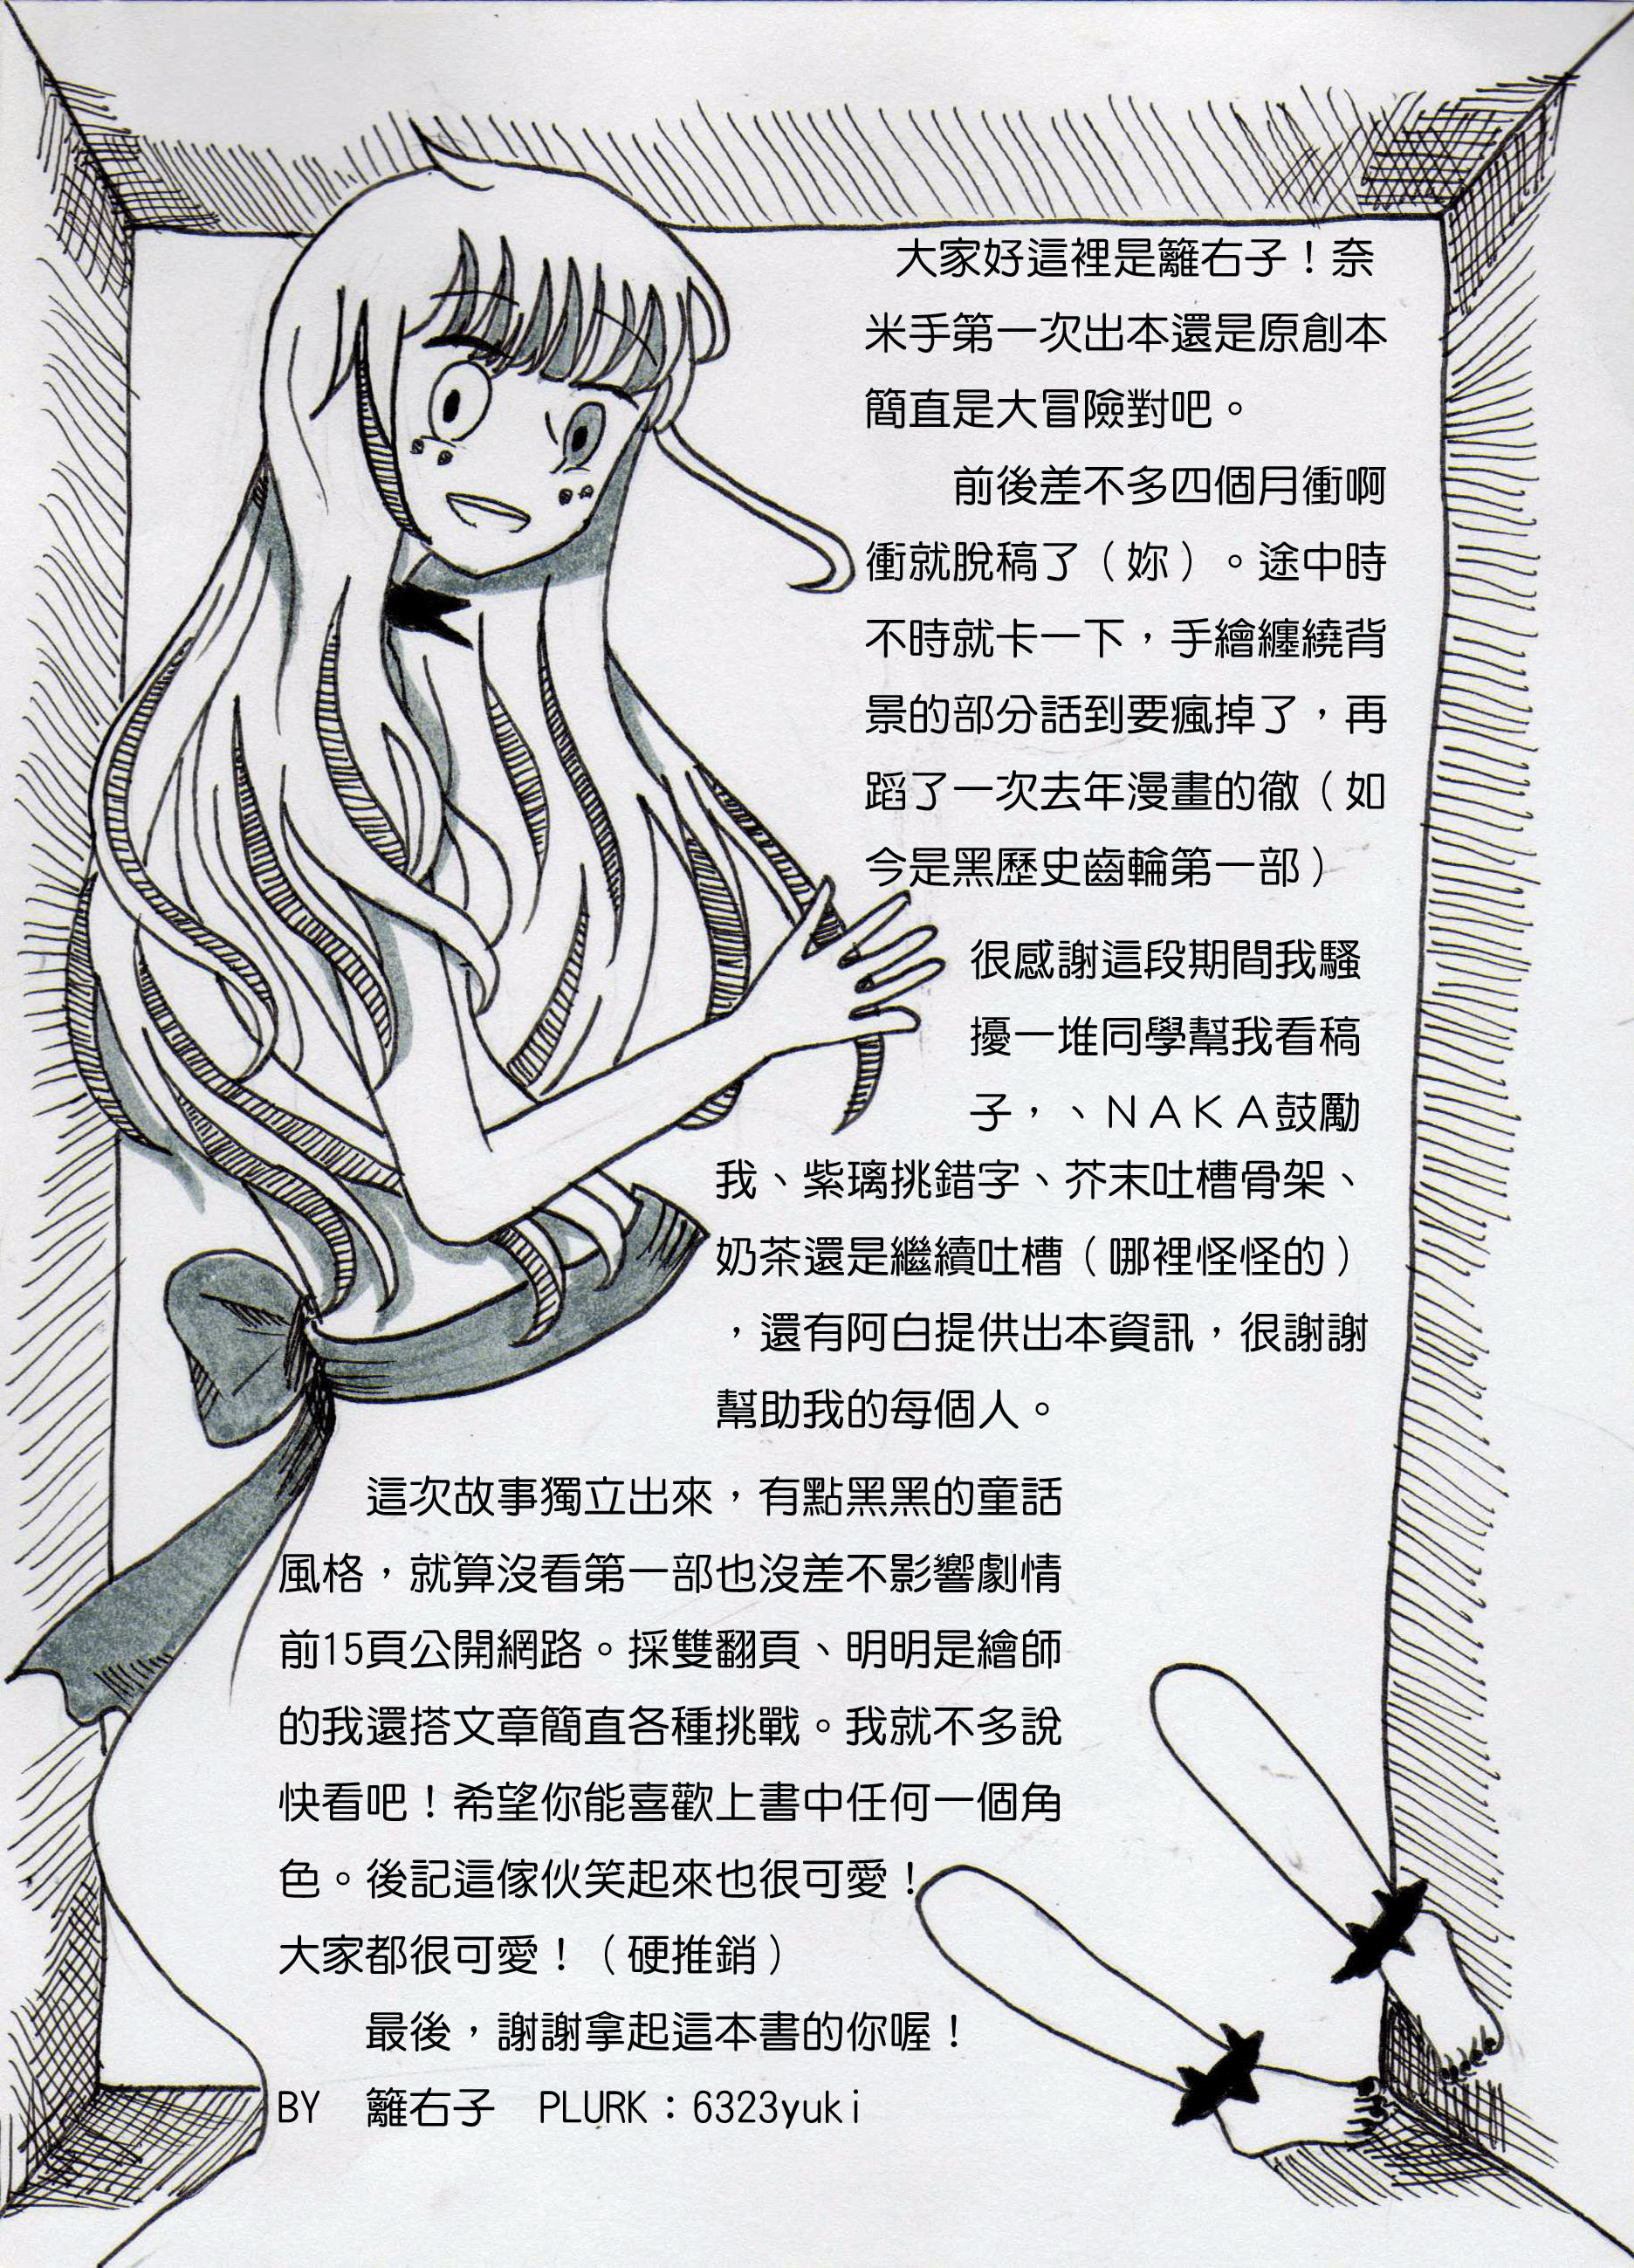 大家好這裡是籬右子！奈
米手第一次出本還是原創本
簡直是大冒險對吧。
前後差不多四個月衝啊
衝就脫稿了（妳）。途中時
不時就卡一下，手繪纏繞背
景的部分話到要瘋掉了，再
蹈了一次去年漫畫的徹（如
今是黑歷史齒輪第一部）
很感謝這段期間我騷
擾一堆同學幫我看稿
子，、ＮＡＫＡ鼓勵
我、紫璃挑錯字、芥末吐槽骨架、
奶茶還是繼續吐槽（哪裡怪怪的）
，還有阿白提供出本資訊，很謝謝
幫助我的每個人。
這次故事獨立出來，有點黑黑的童話
風格，就算沒看第一部也沒差不影響劇情
前15頁公開網路。採雙翻頁、明明是繪師
的我還搭文章簡直各種挑戰。我就不多說
快看吧！希望你能喜歡上書中任何一個角
色。後記這傢伙笑起來也很可愛！
大家都很可愛！（硬推銷）
最後，謝謝拿起這本書的你喔！
BY　籬右子　PLURK：6323yuki